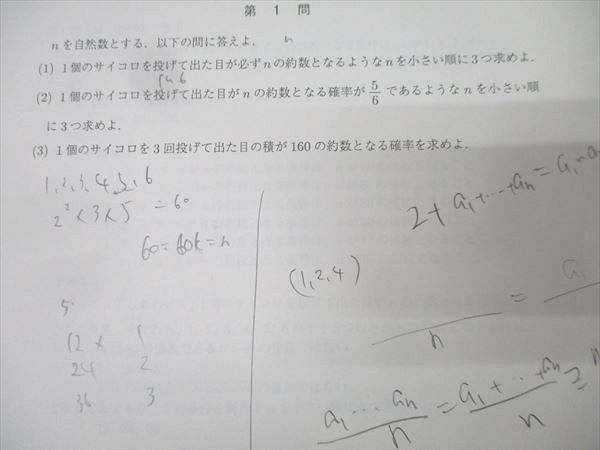 第 1 問
n を自然数とする．以下の問に答えよ． n
(1) 1個のサイコロを投げて出た目が必ず n の約数となるような n を小さい順に3つ求めよ．
(2) 1個のサイコロを投げて出た目が n の約数となる確率が 5/6 であるような n を小さい順
に3つ求めよ．
(3) 1個のサイコロを3回投げて出た目の積が 160 の約数となる確率を求めよ．
1, 2, 3, 4, 5, 6
2² × 3 × 5 = 60
60 = 60k = n
5
12 × 1
24 2
36 3
2 + a₁ + ⋯ + aₙ = a₁
(1, 2, 4)
= a₁
n
a₁ ⋯ aₙ / n = a₁ + ⋯ + aₙ / n =